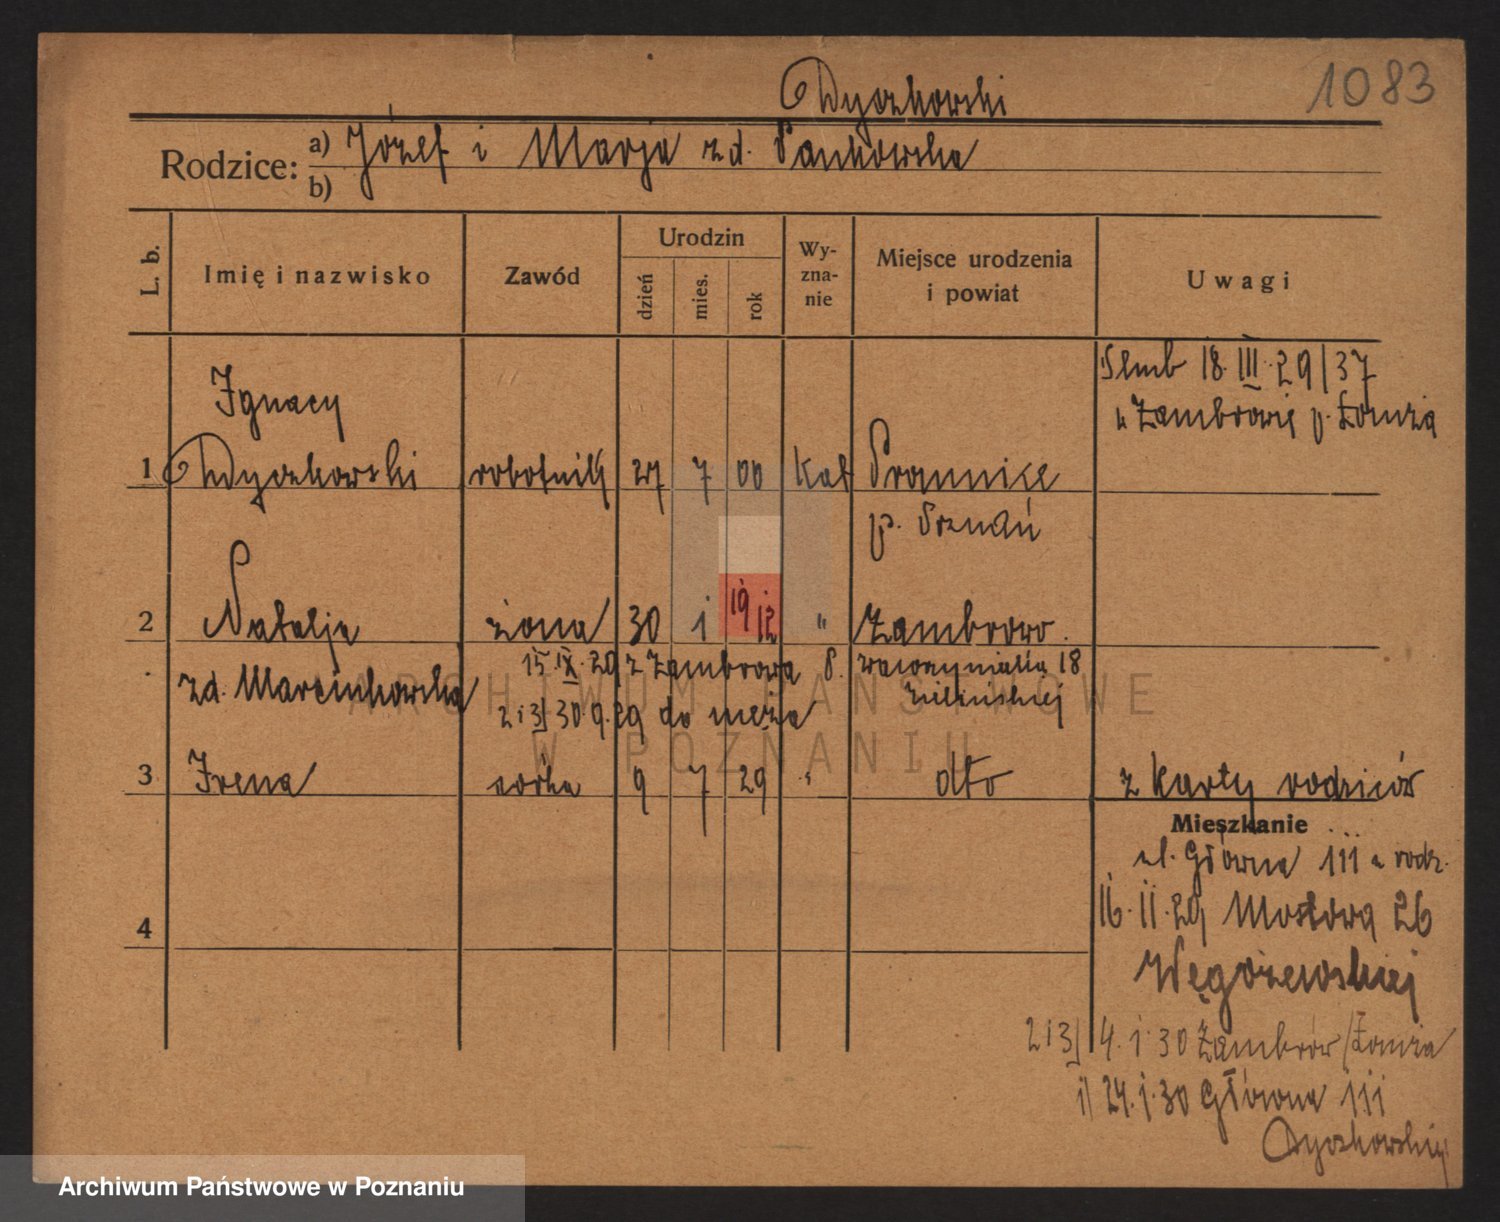 1083
Dyczkowski
Rodzice: a) Józef i Marja zd. Pankowska
b)
L. b. Imię i nazwisko Zawód Urodzin dzień mies. rok Wy-zna-nie Miejsce urodzenia i powiat Uwagi
Ślub 18.III.29/37
w Zambrowie p. Łomża
Ignacy
1 Dyczkowski robotnik 27 7 00 kat
p. Poznań
2 Natalja żona 30 1 1912 " Zambrowo.
zd. Marcinkowska 15.IX.29 z Zambrowa 8. Wawrzyniaka 18
Zielińskiej
2 i 3) 30.9.29 do męża
3 Irena córka 9 7 29 " dto z karty rodziców
Mieszkanie
ul. Główna 111 u rodz.
16.11.29 Mostowa 26
4
2 i 3) 4.1.30 Zambrów/Łomża
1) 24.1.30 Główna 111
ARCHIWUM PAŃSTWOWE
W POZNANIU
Archiwum Państwowe w Poznaniu